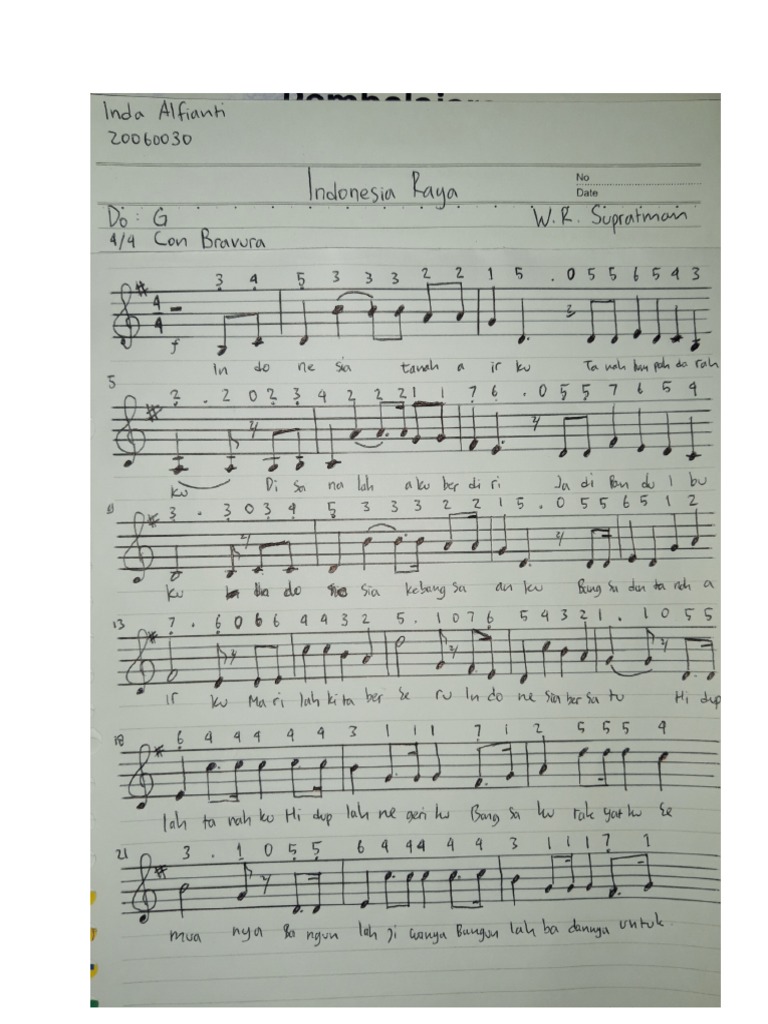 Inda Alfianti
20060030
Indonesia Raya
No
Date
Do : G
W. R. Supratman
4/4 Con Bravura
3 4 5 3 3 3 2 2 1 5 . 0 5 5 6 5 4 3
4 4
f
In do ne sia tanah a ir ku Ta nah tum pah da rah
5
2 . 2 0 2 3 4 2 2 2 1 1 7 6 . 0 5 5 7 6 5 4
ku Di sa na lah aku ber di ri Ja di Pan du I bu
3 . 3 0 3 4 5 3 3 3 2 2 1 5 . 0 5 5 6 5 1 2
ku do sia kebang sa an ku Bang sa dan ta nah a
13
7 . 6 0 6 6 4 4 3 2 5 . 1 0 7 6 5 4 3 2 1 . 1 0 5 5
ir ku Ma ri lah ki ta ber se ru In do ne sia ber sa tu Hi dup
18
6 4 4 4 4 4 3 1 1 1 7 1 2 5 5 5 4
lah ta nah ku Hi dup lah ne geri ku Bang sa ku rak yat ku se
21
3 . 1 0 5 5 6 4 4 4 4 4 3 1 1 1 7 1
mua nya Ba ngun lah ji wanya Bangun lah ba dannya untuk